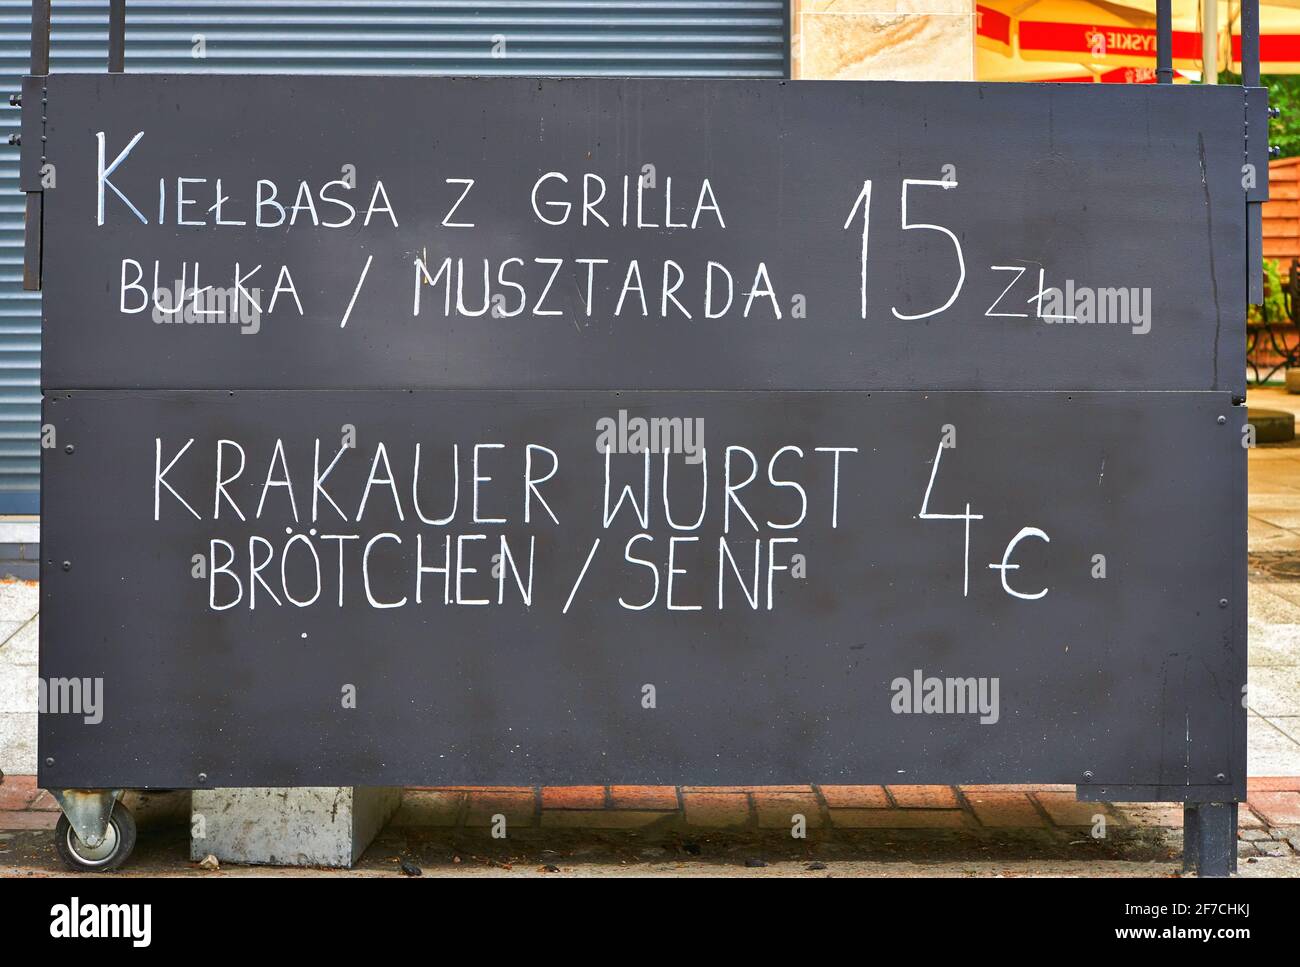 TYSKIE
KIEŁBASA Z GRILLA
BUŁKA / MUSZTARDA 15 ZŁ
KRAKAUER WURST 4 €
BRÖTCHEN / SENF
alamy
alamy
Image ID: 2F7CHKJ
www.alamy.com